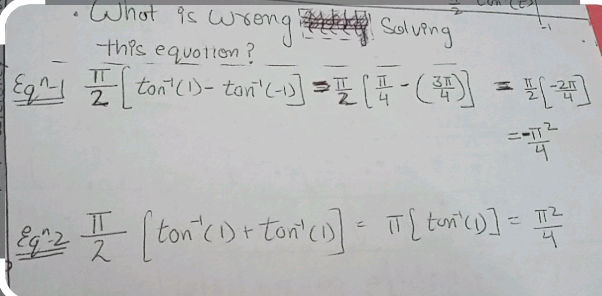 π/2 tan⁻¹(t)|₋₁
• What is wrong solving
this equation?
Eqⁿ-1 π/2 [tan⁻¹(1) - tan⁻¹(-1)] = π/2 [π/4 - (3π/4)] = π/2 [-2π/4]
= -π²/4
Eqⁿ-2 π/2 [tan⁻¹(1) + tan⁻¹(1)] = π[tan⁻¹(1)] = π²/4